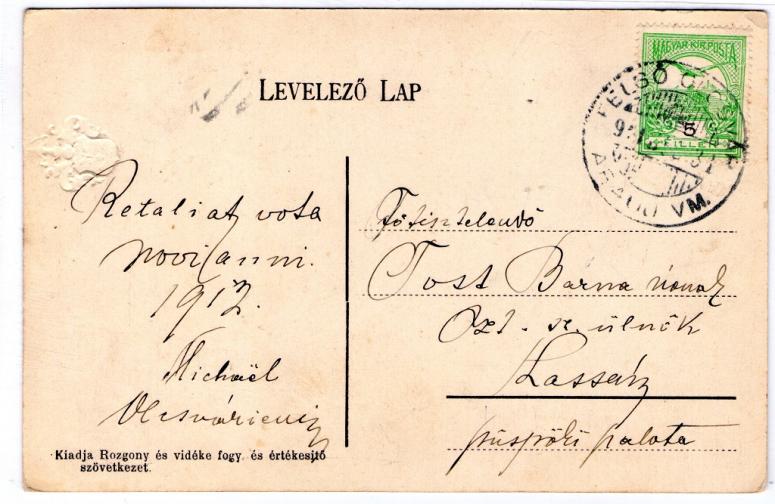 LEVELEZŐ LAP
MAGYAR·KIR·POSTA
5
FILLÉR
FELSŐ
VM.
Retaliat vota
novi anni.
1912.
Michaël
Kiadja Rozgony és vidéke fogy. és értékesitő
szövetkezet.
Főtisztelendő
Tost Barna úrnak
szt. sz. ülnök
püspöki palota